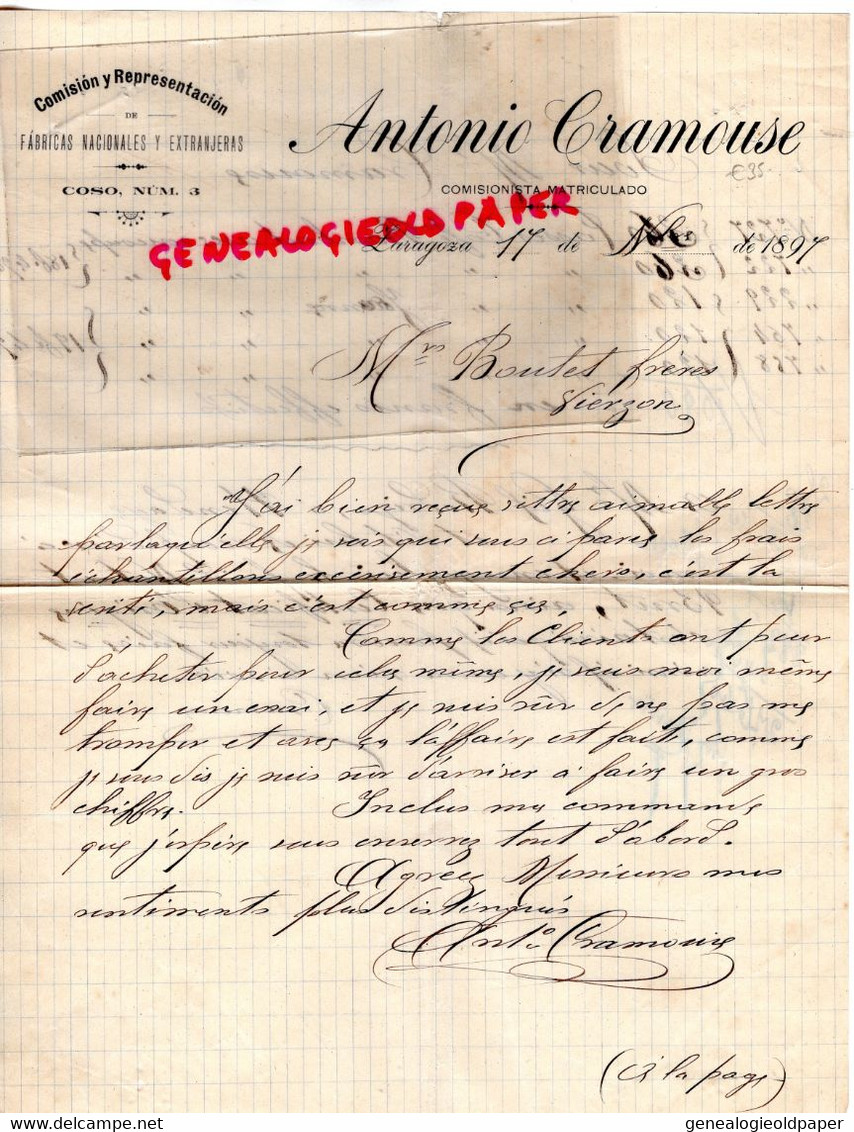 Comisión y Representación
DE
FÁBRICAS NACIONALES Y EXTRANJERAS
COSO, NÚM. 3
Antonio Cramouse
COMISIONISTA MATRICULADO
€35-
GENEALOGIEOLD PAPER
Zaragoza 17 de de 1897
Mrs Boutet frères
Vierzon
J'ai bien reçue vottre aimable lettre
parlaqu'elle je vois qui vous ci pares les frais
échantillons excisivement chers, c'est la
verité, mais c'est comme ça,
Comme les Clients ont peur
d'acheter pour eles même, je veus moi même
faire un essai, et je suis sûr de ne pas me
tromper et avec ça l'affaire est fait, comme
je vous dis je suis sûr d'arriver a faire un gros
chiffre. Inclus ma commande
que j'espère vous enverrez tout d'abord.
Agreez Messieurs mes
sentiments plus distingués
Anto Cramouse
(à la page)
genealogieoldpaper